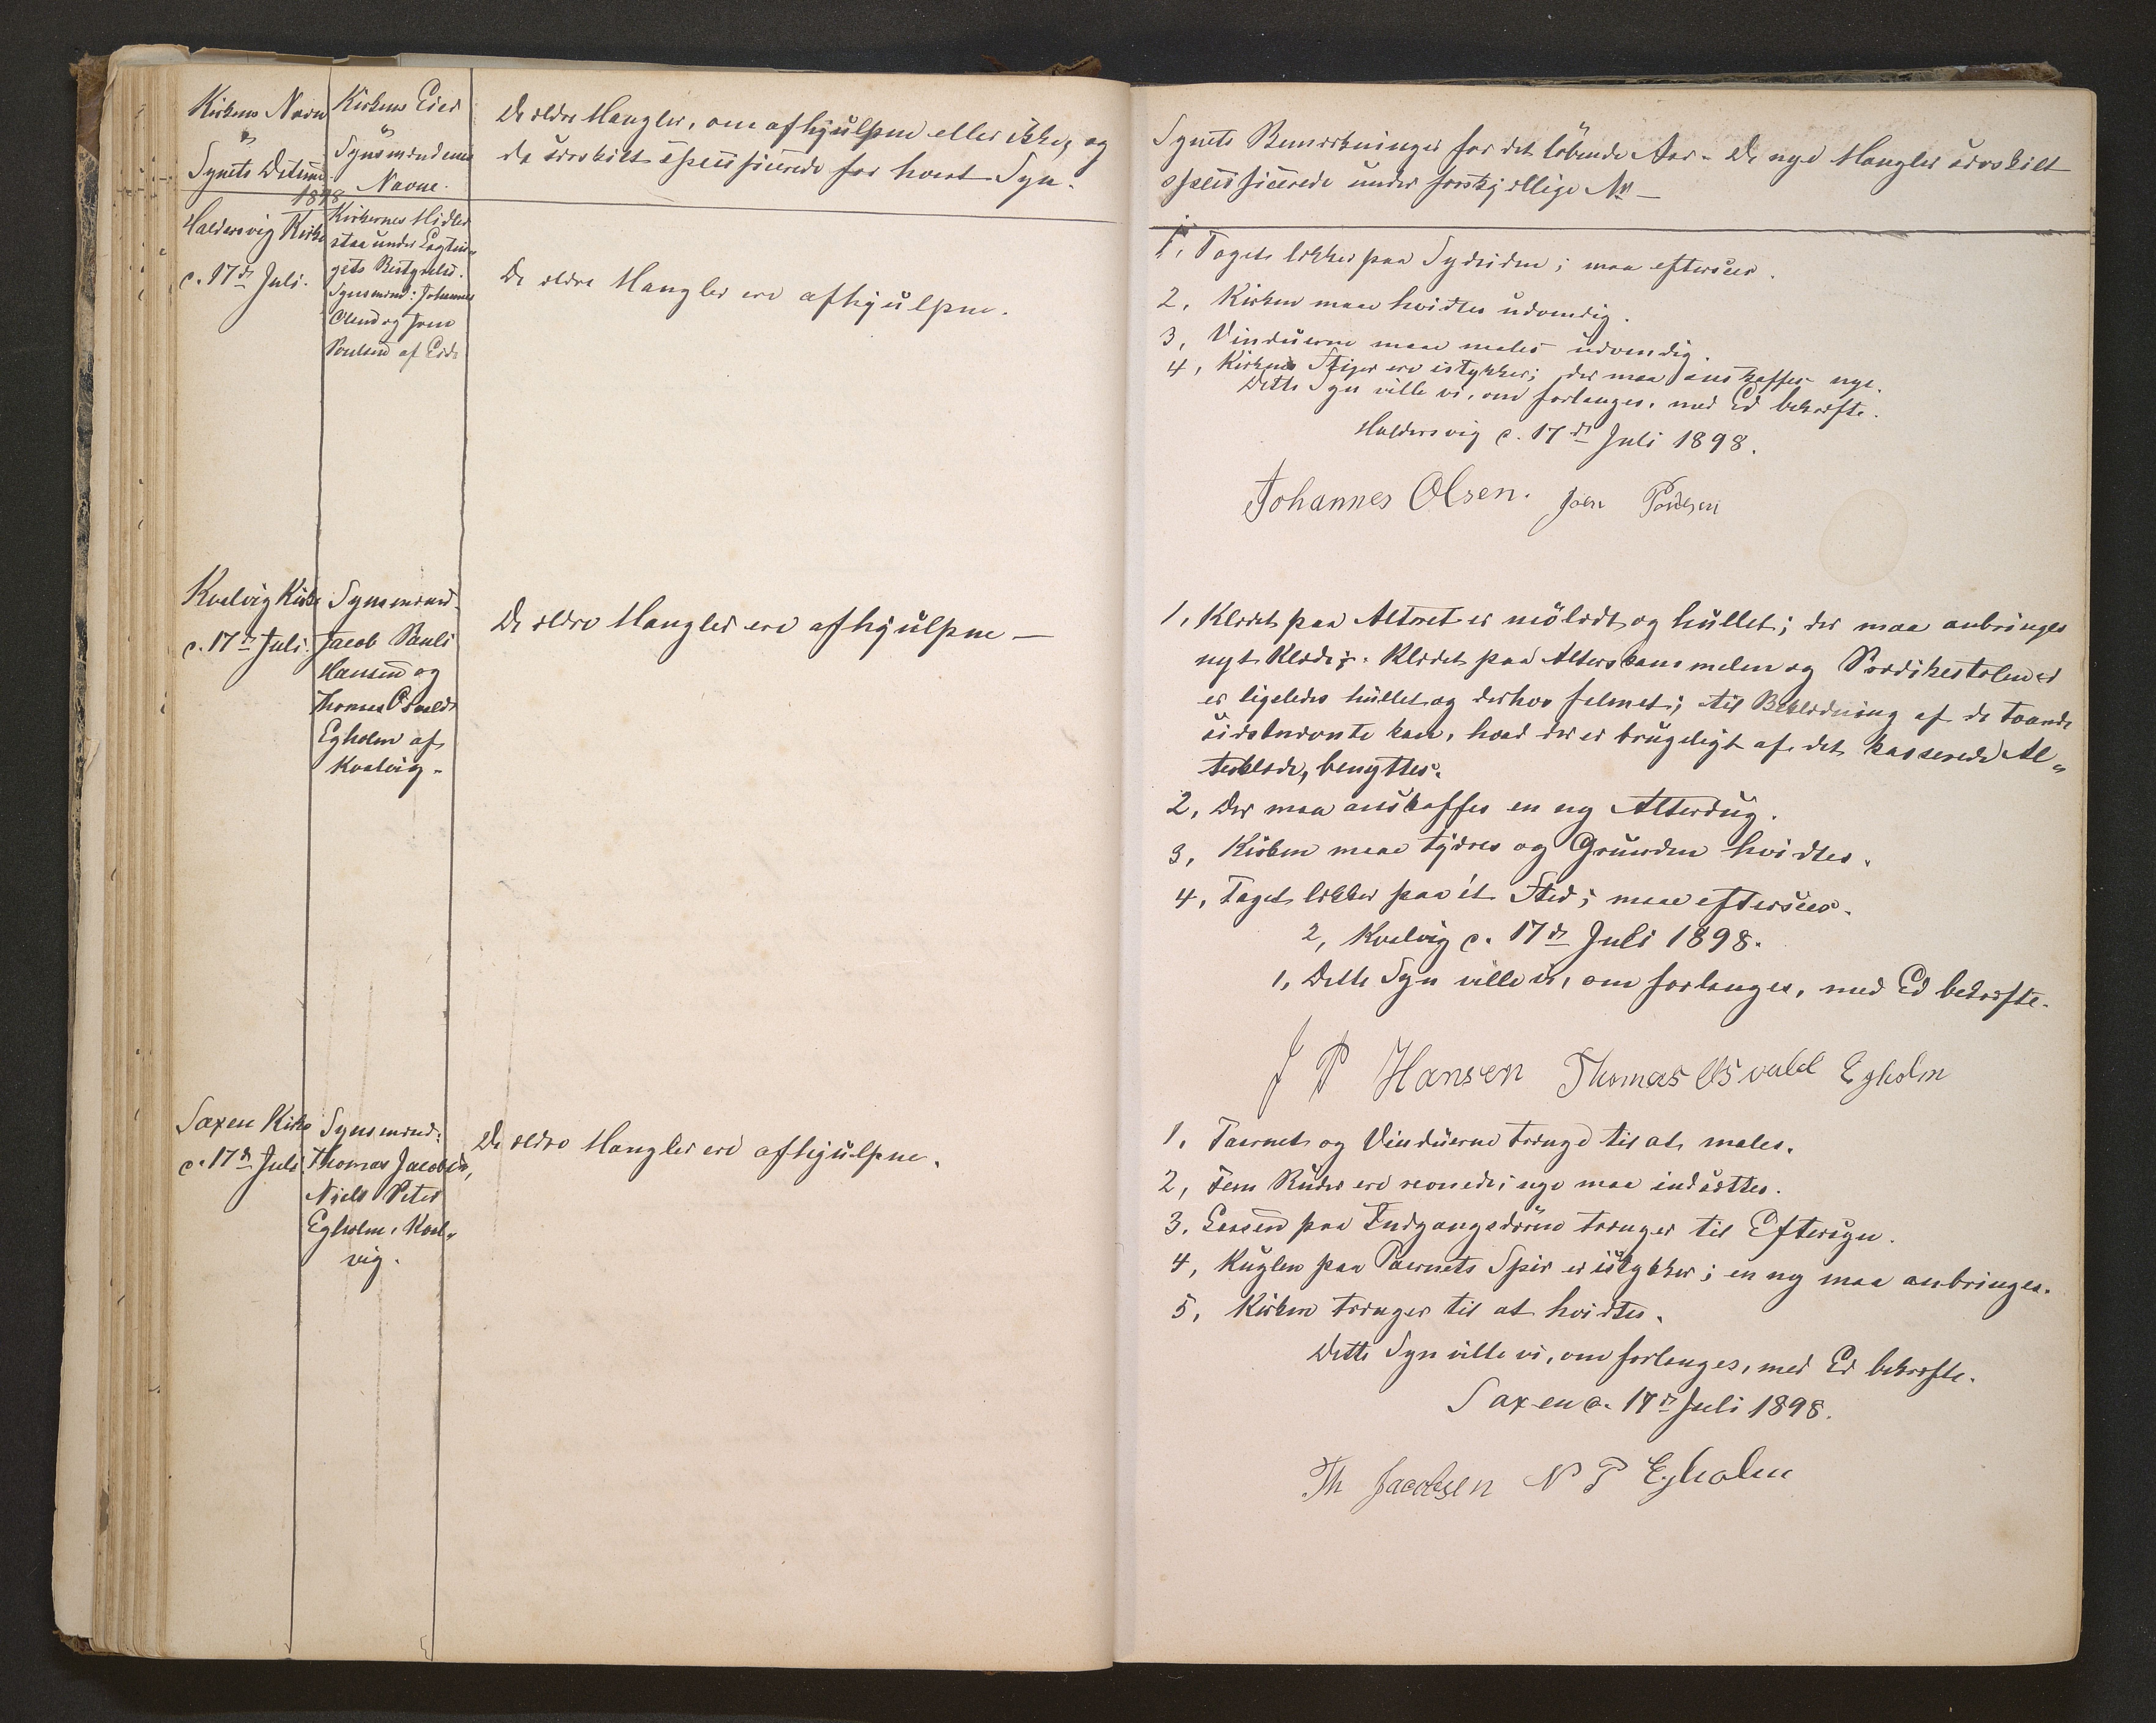 Kirkens Navn
&
Synets Datum.
1898
Kirkens Eier
&
Synsmændenes
Navne.
De ældre Mangler, om afhjulpne eller ikke, og
de særskilt specificerede for hvert Syn.
Haldersvig Kirke
d. 17de Juli.
Kirkernes Midler
staa under Lagtin-
gets Bestyrelse.
Synsmænd: Johannes
Olsen og Joen
Poulsen af Eide
De ældre Mangler ere afhjulpne.
Kvalvig Kirke
d. 17de Juli.
Synsmænd.
Jacob Pauli
Hansen og
Thomas Osvald
Egholm af
Kvalvig.
De ældre Mangler ere afhjulpne —
Saxen Kirke
d. 17de Juli
Synsmænd:
Thomas Jacobsen,
Niels Peter
Egholm, Kval-
vig.
De ældre Mangler ere afhjulpne.
Synets Bemærkninger for det løbende Aar. De nye Mangler særskilt
specificerede under forskjellige No —
1, Taget lækker paa Sydsiden; maa eftersees.
2, Kirken maa hvidtes udvendig.
3, Vinduerne maa males udvendig.
4, Kirkens Stiger ere istykker; der maa anskaffes nye.
Dette Syn ville vi, om forlanges, med Ed bekræfte.
Haldersvig d. 17de Juli 1898.
Johannes Olsen. Joen Poulsen
1, Klædet paa Alteret er mølædt og hullet; der maa anbringes
nyt Klæde. Klædet paa Alterskammelen og Prædikestolen
er ligeledes hullet og derhos falmet; til Beklædning af de tvende
sidstnævnte kan, hvad der er brugeligt af det kasserede Al-
terklæde, benyttes.
2, Der maa anskaffes en ny Alterdug.
3, Kirken maa tjæres og Grunden hvidtes.
4, Taget lækker paa ét Sted; maa eftersees.
2, Kvalvig d. 17de Juli 1898.
1, Dette Syn ville vi, om forlanges, med Ed bekræfte.
J P Hansen Thomas Osvald Egholm
1, Taarnet og Vinduerne trænge til at males.
2, Fem Ruder ere revnede; nye maa indsættes.
3, Laasen paa Indgangsdøren trænger til Eftersyn.
4, Kuglen paa Taarnets Spir er istykker; en ny maa anbringes.
5, Kirken trænger til at hvidtes.
Dette Syn ville vi, om forlanges, med Ed bekræfte.
Saxen d. 17de Juli 1898.
Th Jacobsen N P Egholm